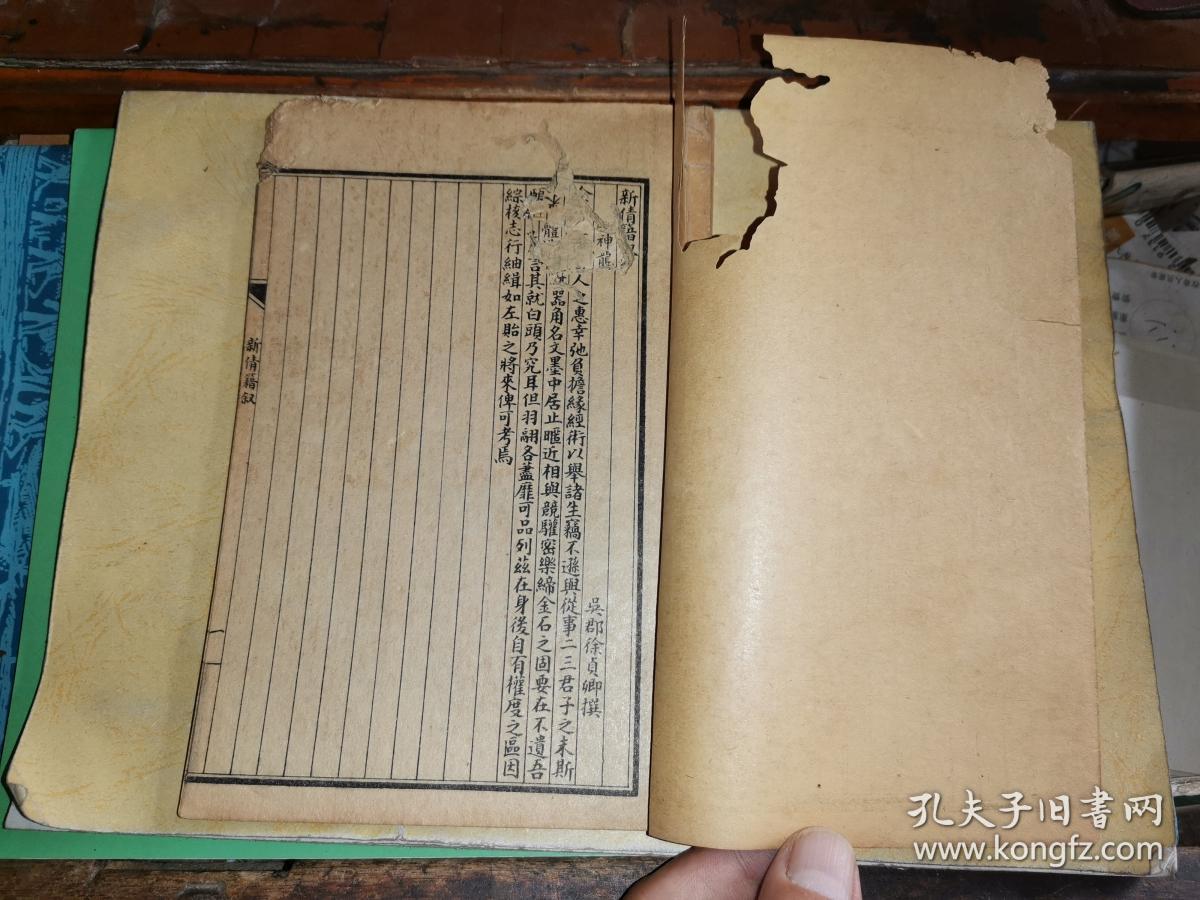 新倩籍
神龍
吳郡徐貞卿撰
人之惠幸弛負擔緣經術以舉諸生竊不遜與從事二三君子之末斯
器角名文墨中居止暱近相與競驩密樂締金石之固要在不遺吾
言其就白頭乃究耳但羽翮各蓋靡可品列茲在身後自有權度之區因
綜核志行紬緝如左貽之將來俾可考焉
新倩籍叙
一
孔夫子旧书网
www.kongfz.com